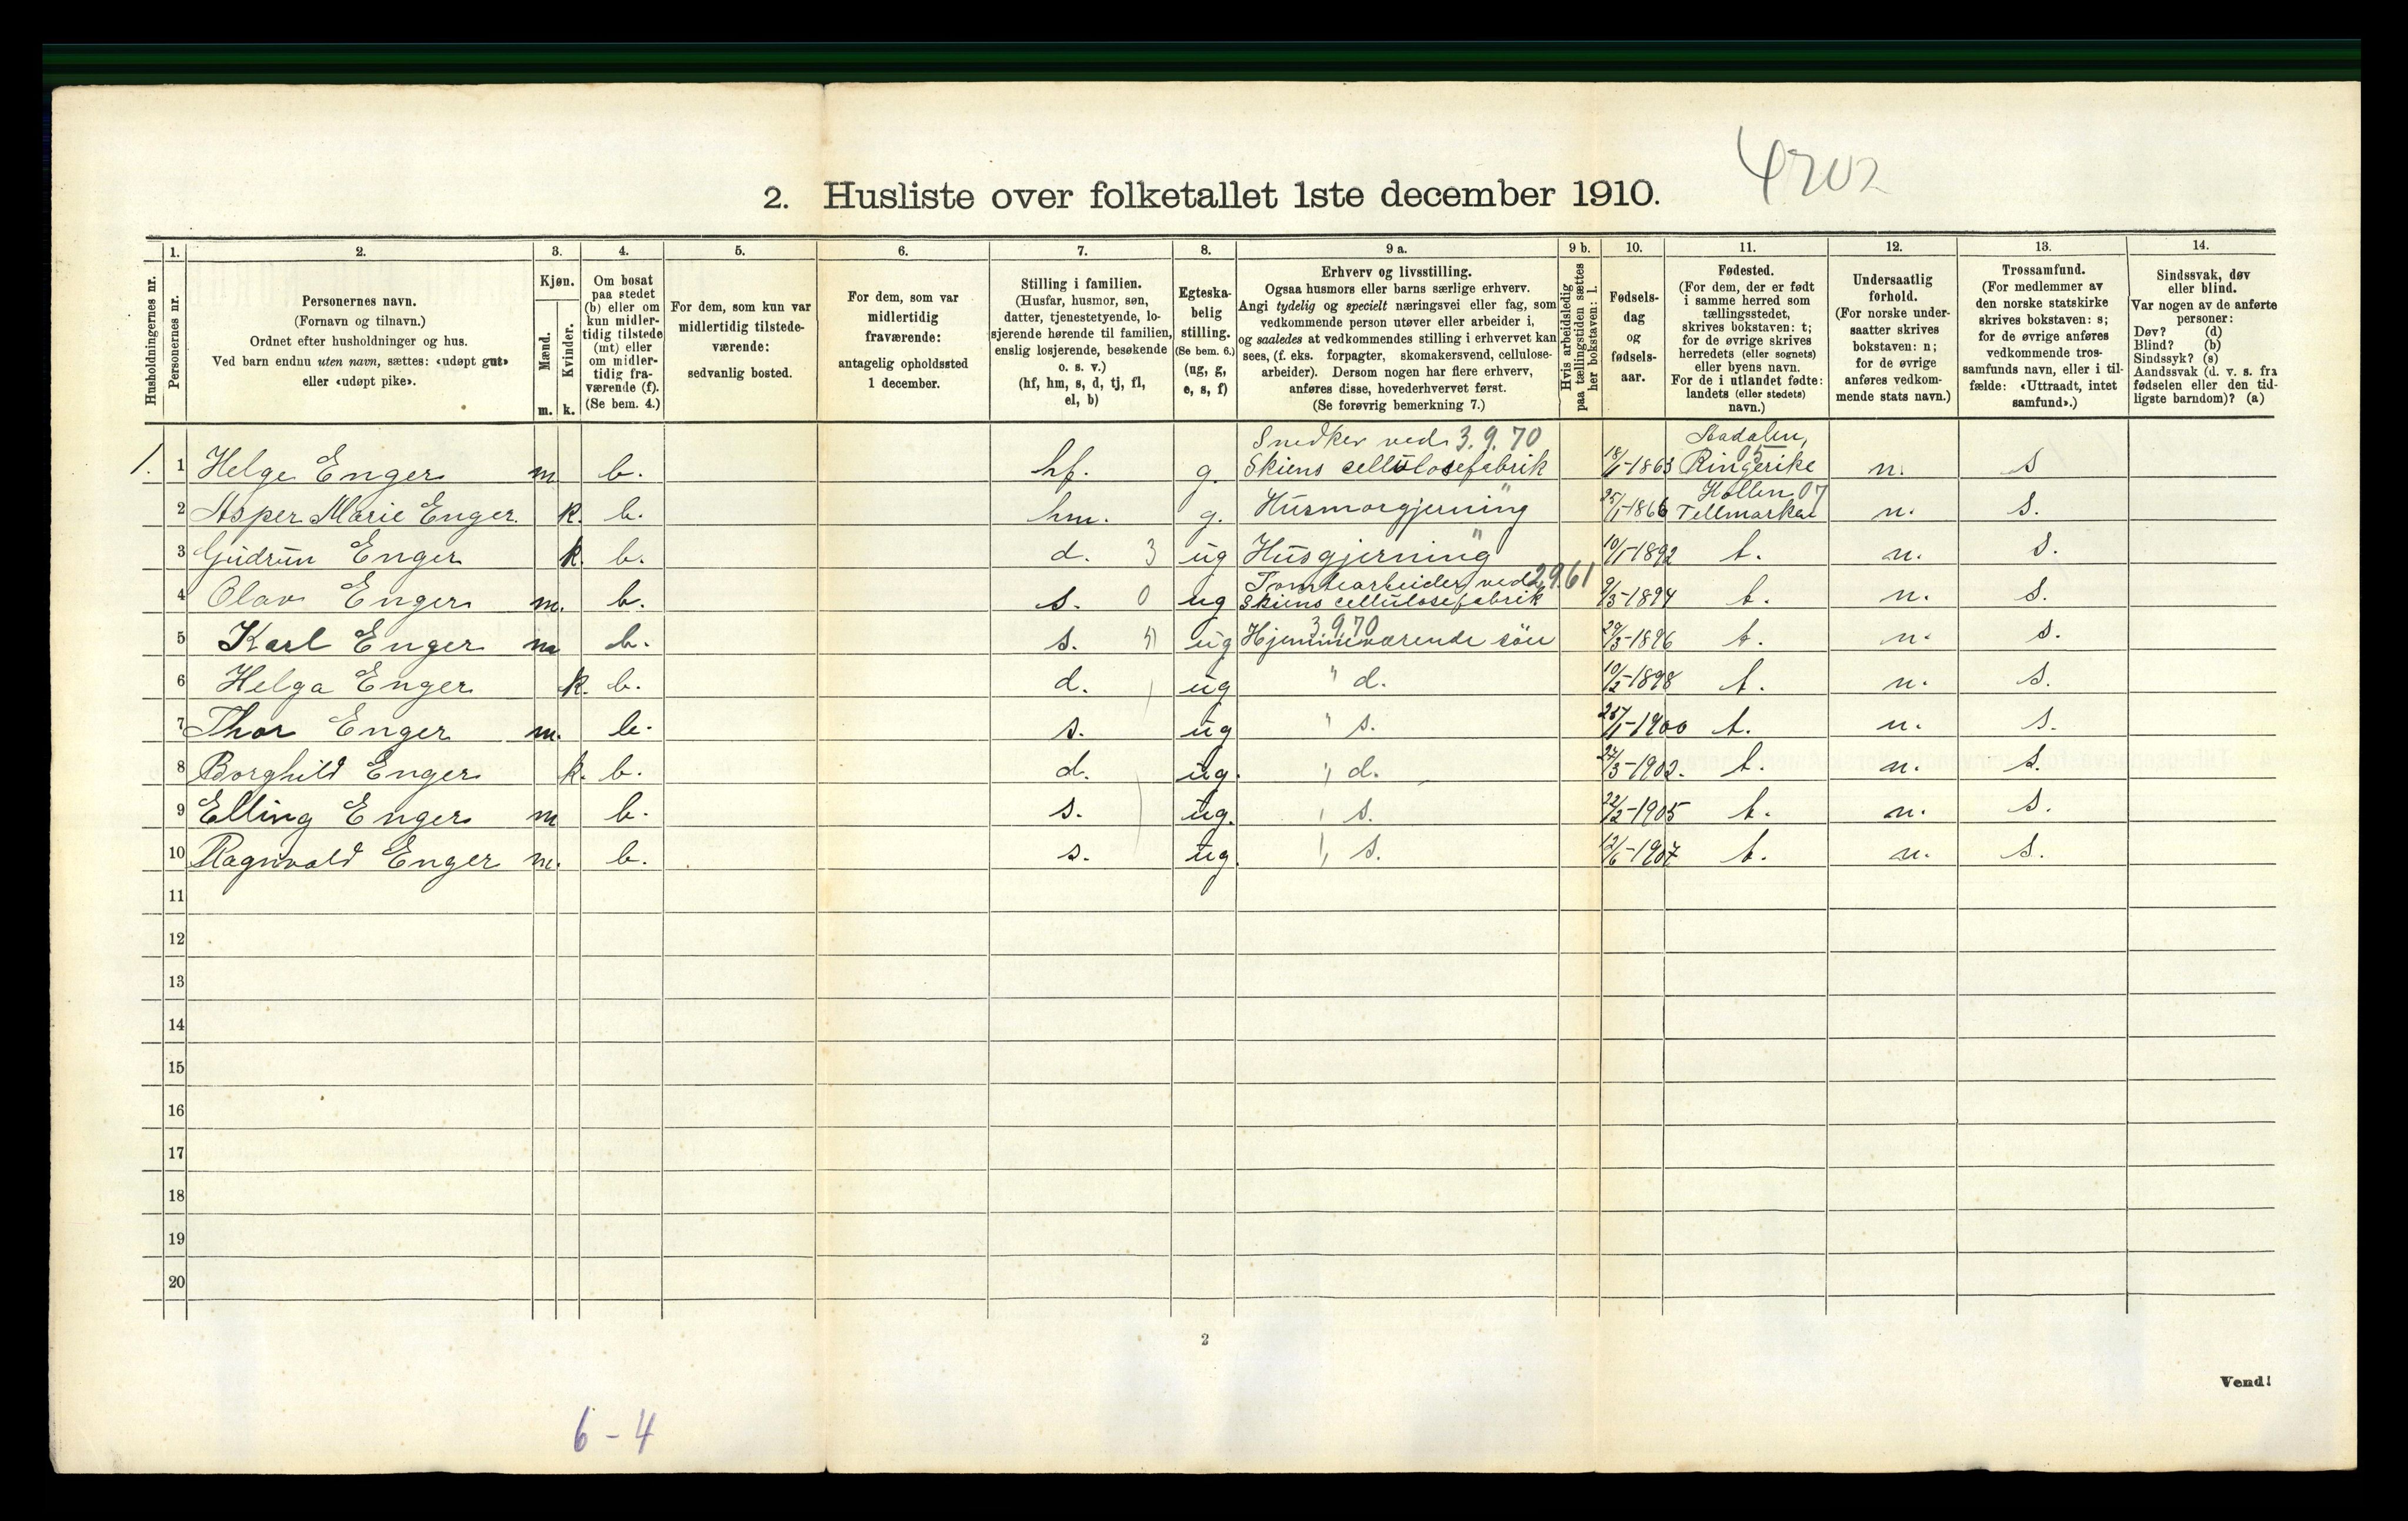 4702
2. Husliste over folketallet 1ste december 1910.
1. 2. 3. 4. 5. 6. 7. 8. 9 a. 9 b. 10. 11. 12. 13. 14.
Husholdningernes nr.
Personernes nr.
Personernes navn.
(Fornavn og tilnavn.)
Ordnet efter husholdninger og hus.
Ved barn endnu uten navn, sættes: «udøpt gut»
eller «udøpt pike».
Kjøn.
Mænd.
Kvinder.
m. k.
Om bosat
paa stedet
(b) eller om
kun midler-
tidig tilstede
(mt) eller
om midler-
tidig fra-
værende (f).
(Se bem. 4.)
For dem, som kun var
midlertidig tilstede-
værende:
sedvanlig bosted.
For dem, som var
midlertidig
fraværende:
antagelig opholdssted
1 december.
Stilling i familien.
(Husfar, husmor, søn,
datter, tjenestetyende, lo-
sjerende hørende til familien,
enslig losjerende, besøkende
o. s. v.)
(hf, hm, s, d, tj, fl,
el, b)
Egteska-
belig
stilling.
(Se bem. 6.)
(ug, g,
e, s, f)
Erhverv og livsstilling.
Ogsaa husmors eller barns særlige erhverv.
Angi tydelig og specielt næringsvei eller fag, som
vedkommende person utøver eller arbeider i,
og saaledes at vedkommendes stilling i erhvervet kan
sees, (f. eks. forpagter, skomakersvend, cellulose-
arbeider). Dersom nogen har flere erhverv,
anføres disse, hovederhvervet først.
(Se forøvrig bemerkning 7.)
Hvis arbeidsledig
paa tællingstiden sættes
her bokstaven: l.
Fødsels-
dag
og
fødsels-
aar.
Fødested.
(For dem, der er født
i samme herred som
tællingsstedet,
skrives bokstaven: t;
for de øvrige skrives
herredets (eller sognets)
eller byens navn.
For de i utlandet fødte:
landets (eller stedets)
navn.)
Undersaatlig
forhold.
(For norske under-
saatter skrives
bokstaven: n;
for de øvrige
anføres vedkom-
mende stats navn.)
Trossamfund.
(For medlemmer av
den norske statskirke
skrives bokstaven: s;
for de øvrige anføres
vedkommende tros-
samfunds navn, eller i til-
fælde: «Uttraadt, intet
samfund».)
Sindssvak, døv
eller blind.
Var nogen av de anførte
personer:
Døv? (d)
Blind? (b)
Sindssyk? (s)
Aandssvak (d. v. s. fra
fødselen eller den tid-
ligste barndom)? (a)
Snedker ved 3.9.70 Aadalen,
1. 1 Helge Enger m b. hf. g. Skiens cellulosefabrik 18/1-1863 Ringerike 05 n. s
Hollen 07
2 Asper Marie Enger k. b. hm. g. Husmorgjerning 25/1-1866 Tellmarken n. s.
3 Gudrun Enger k. b. d. 3 ug Husgjerning 10/1-1892 t. n. s.
Tomtearbeider ved 29.61
4 Olav Enger m. b. s. 0 ug Skiens cellulosefabrik 9/5-1894 t. n. s.
3970
5 Karl Enger m b. s. ug Hjemmeværende søn 29/3-1896 t. n. s.
6 Helga Enger k. b. d. ug " d. 10/2-1898 t. n. s.
7 Thor Enger m. b. s. ug " s. 1900 t. n. s.
8 Borghild Enger k. b. d. ug. " d. 27/3-1902. t. n. s.
9 Elling Enger m b. s. ug. " s. 22/2-1905 t. n. s.
10 Ragnvald Enger m. b. s. ug. " s. 12/6-1907 t. n. s.
11
12
13
14
15
16
17
18
19
20
2
Vend!
6-4